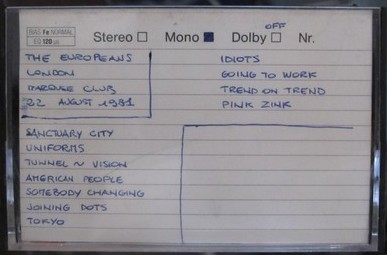 OFF
BIAS Fe NORMAL
EQ 120 µs
Stereo Mono Dolby Nr.
THE EUROPEANS
LONDON
MARQUEE CLUB
22 AUGUST 1981
IDIOTS
GOING TO WORK
TREND ON TREND
PINK ZINK
SANCTUARY CITY
UNIFORMS
TUNNEL ~ VISION
AMERICAN PEOPLE
SOMEBODY CHANGING
JOINING DOTS
TOKYO